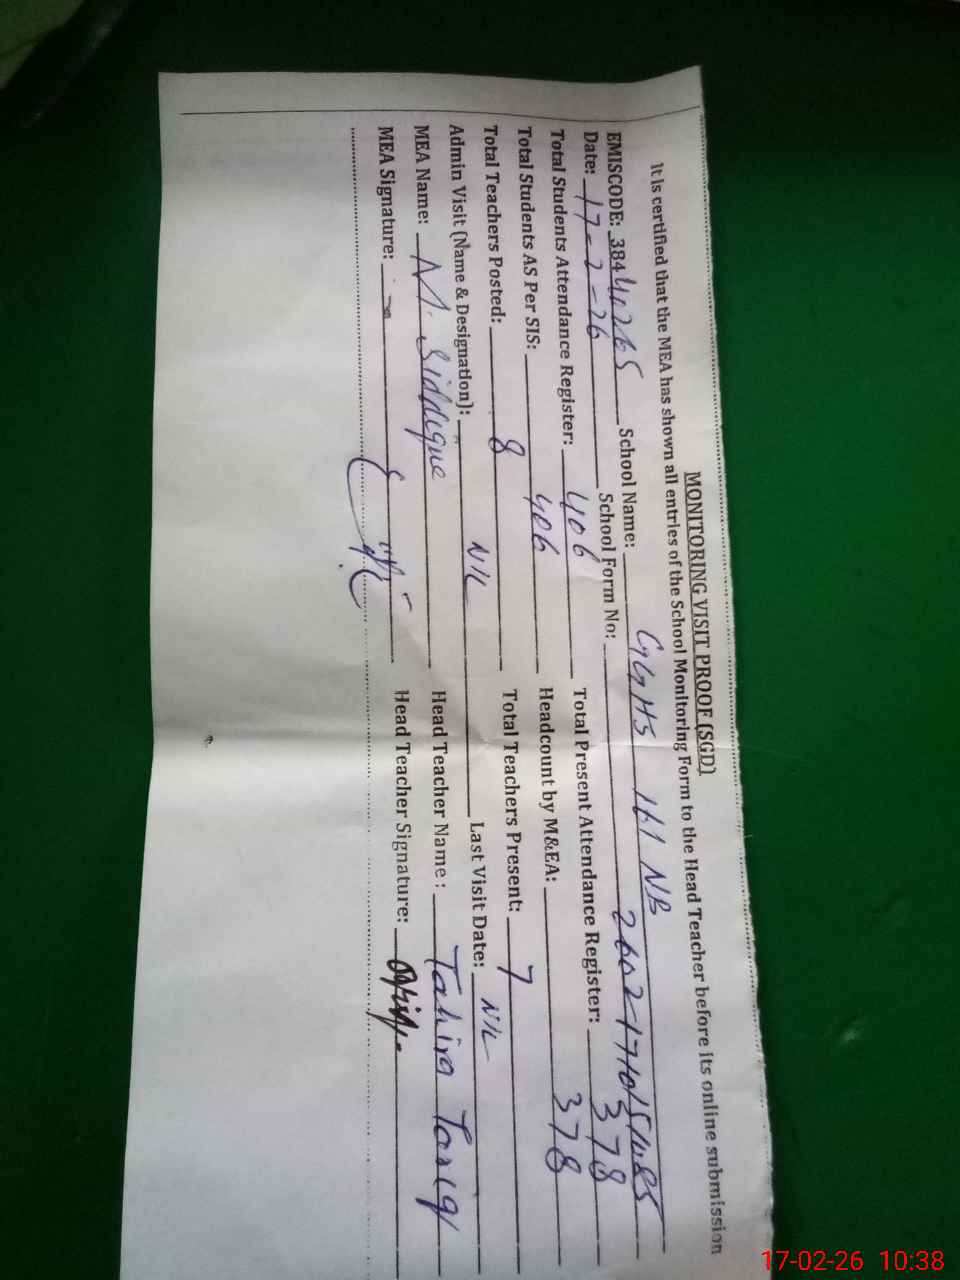 MONITORING VISIT PROOF (SGD)
It is certified that the MEA has shown all entries of the School Monitoring Form to the Head Teacher before its online submission
EMISCODE: 38440265 School Name: GGHS 161 NB
Date: 17-2-26 School Form No:
Total Students Attendance Register: 406 Total Present Attendance Register: 378
Total Students AS Per SIS: 406 Headcount by M&EA: 378
Total Teachers Posted: 8 Total Teachers Present: 7
Admin Visit (Name & Designation): NIL Last Visit Date: NIL
MEA Name: M. Siddique Head Teacher Name: Tahira Tariq
MEA Signature: Head Teacher Signature:
17-02-26 10:38